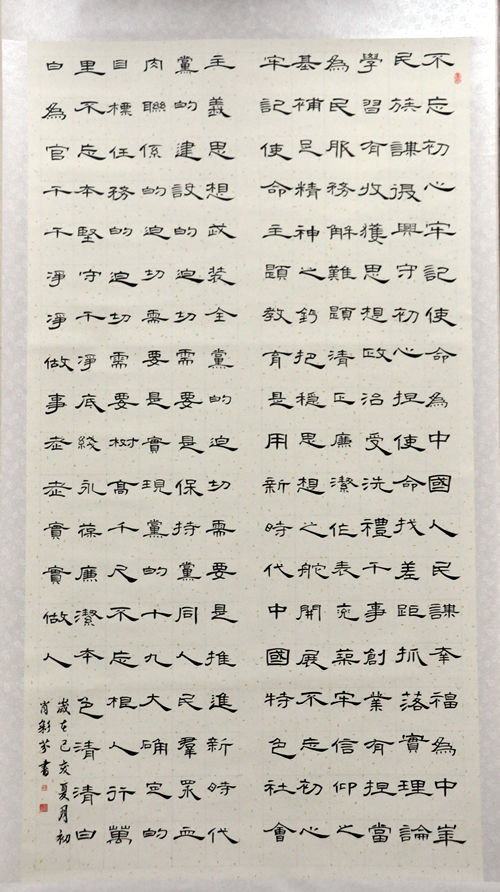 不忘初心牢記使命為中國人民謀幸福為中華
民族謀復興守初心担使命找差距抓落實理論
學習有收獲思想政治受洗禮干事創業有担當
為民服務解難題清正廉潔作表率築牢信仰之
基補足精神之鈣把穩思想之舵開展不忘初心
牢記使命主題教育是用新時代中國特色社會
主義思想武裝全黨的迫切需要是推進新時代
黨的建設的迫切需要是保持黨同人民羣眾血
肉聯係的迫切需要是實現黨的十九大確定的
目標任務的迫切需要樹高千尺不忘根人行萬
里不忘本堅守干淨底綫永葆廉潔本色清清白
白為官干干淨淨做事老老實實做人
歲在己亥夏月初
肖彩芬書